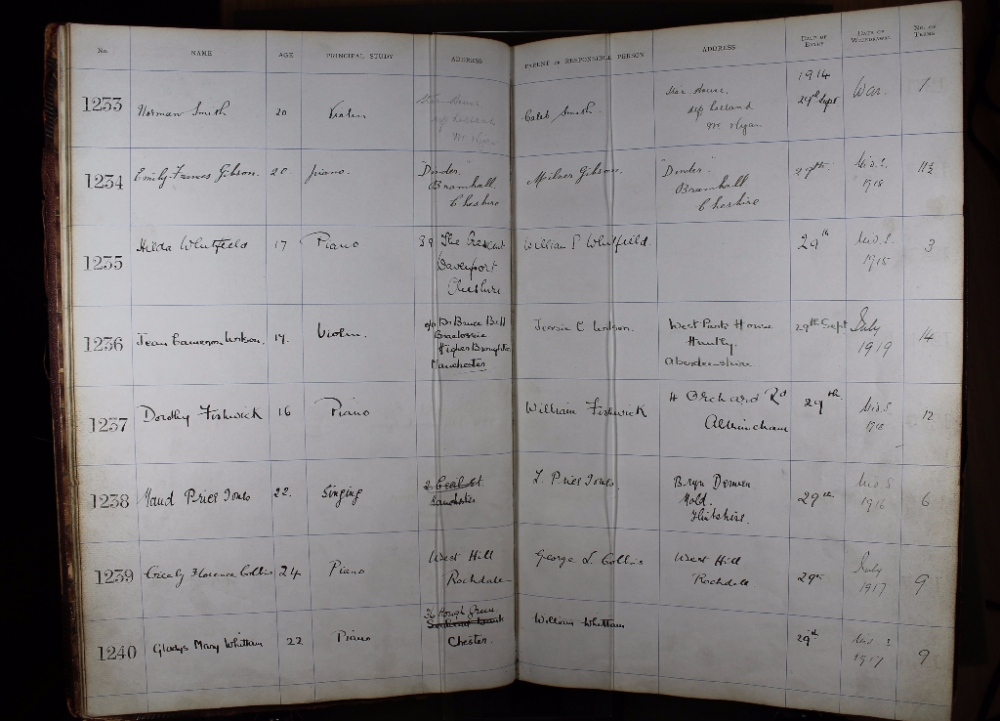 No. NAME AGE PRINCIPAL STUDY ADDRESS PARENT OR RESPONSIBLE PERSON ADDRESS DATE OF ENTRY DATE OF WITHDRAWAL NO. OF TERMS
1914
1233 Norman Smith 20 Violin Caleb Smith. 29th Sept War. 1
1234 Emily Frances Gibson. 20 piano. "Dinder" Milner Gibson. "Dinder" 29th 11½
Bramhall Bramhall 1918
Cheshire Cheshire
1235 Hilda Whitfield 17 Piano 39 The Crescent William S Whitfield. 29th 3
Davenport 1915
Cheshire
1236 Jean Cameron 17. Violin. c/o Dr Bruce Bell Jessie C 29th Sept July 14
Higher Broughton Huntly. 1919
Manchester Aberdeenshire
1237 Dorothy Fishwick 16 Piano William Fishwick 4 Orchard Rd 29th 12
Altrincham 1918
1238 Maud Price Jones 22. Singing L. Price Jones. Bryn Derwen 29th 6
Mold. 1916
Flintshire.
1239 Cicely Florence Collins 24 Piano West Hill George L. Collins West Hill 29th July 9
Rochdale Rochdale 1917
1240 Gladys Mary Whittam 22 Piano 36 Hough Green William Whittam 29th 9
Chester. 1917